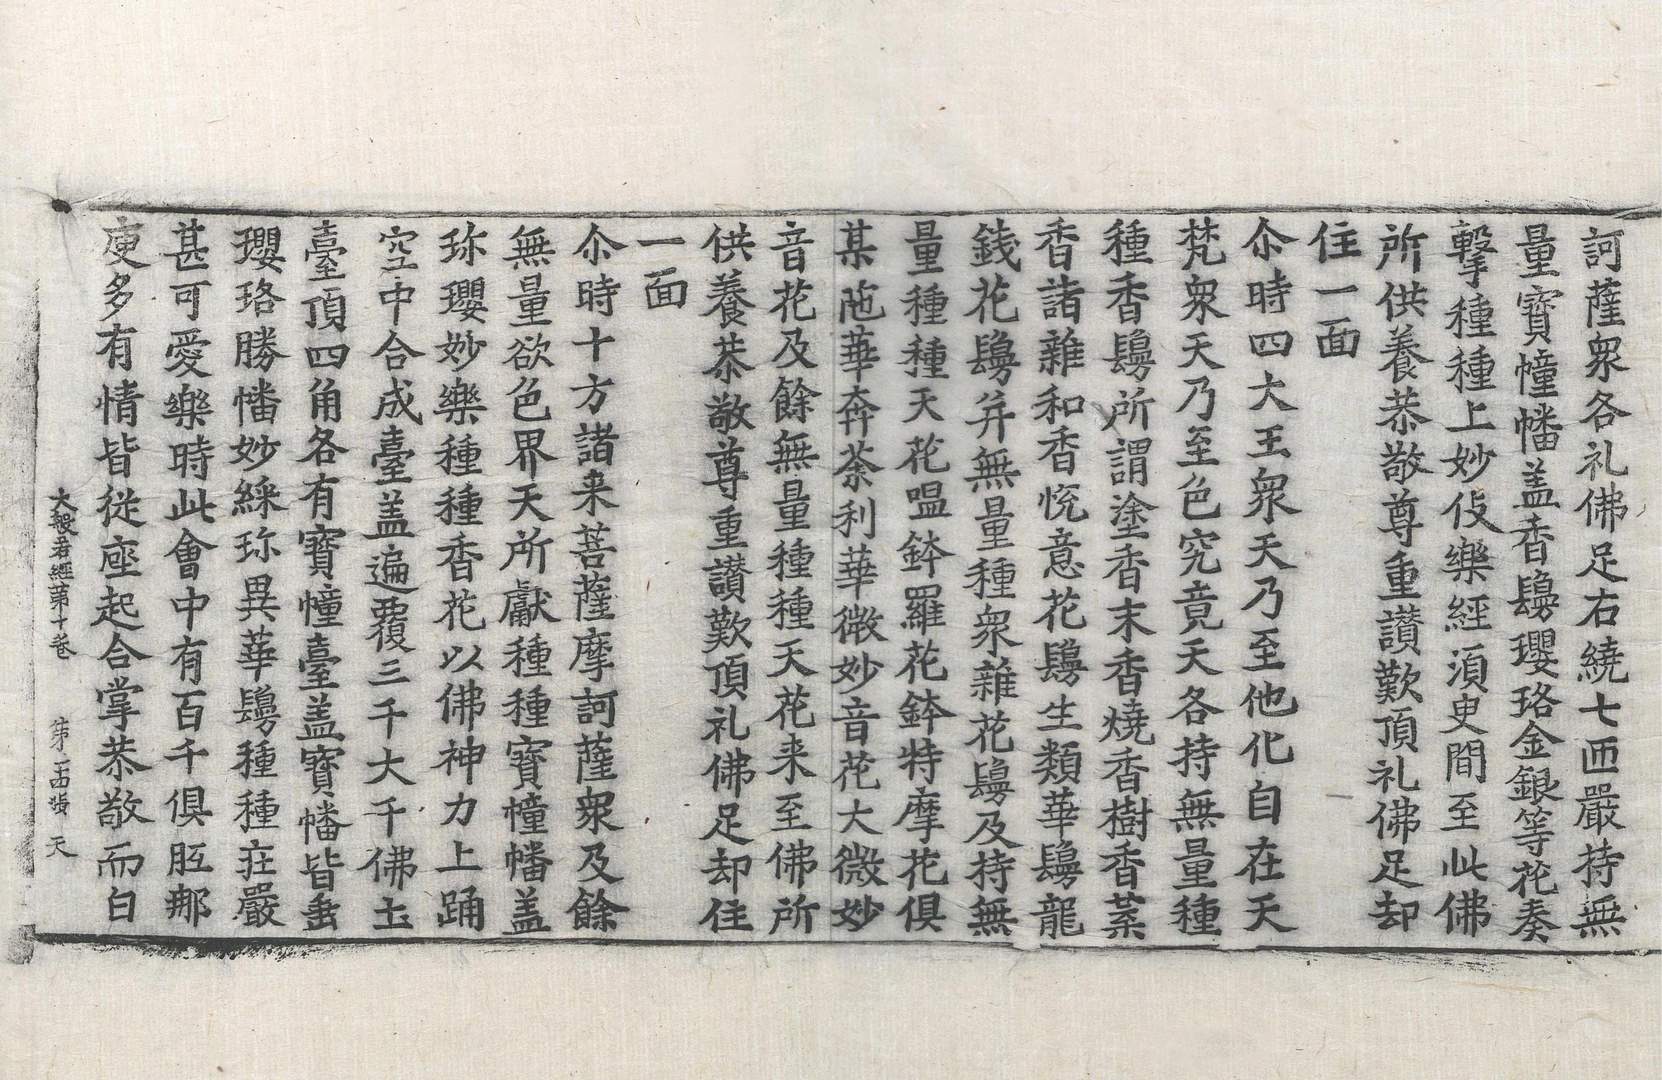 訶薩衆各礼佛足右繞七匝嚴持無
量寶幢幡盖香鬘瓔珞金銀等花奏
擊種種上妙伎樂經湏臾間至此佛
所供養恭敬尊重讃歎頂礼佛足却
住一面
尒時四大王衆天乃至他化自在天
梵衆天乃至色究竟天各持無量種
種香鬘所謂塗香末香燒香樹香葉
香諸雜和香恱意花鬘生類華鬘龍
錢花鬘并無量種衆雜花鬘及持無
量種種天花嗢鉢羅花鉢特摩花俱
某陁華奔荼利華微妙音花大微妙
音花及餘無量種種天花来至佛所
供養恭敬尊重讃歎頂礼佛足却住
一面
尒時十方諸来菩薩摩訶薩衆及餘
無量欲色界天所獻種種寶幢幡盖
珎瓔妙樂種種香花以佛神力上踊
空中合成臺盖遍覆三千大千佛土
臺頂四角各有寶幢臺盖寶幡皆垂
瓔珞勝幡妙綵珎異華鬘種種莊嚴
甚可愛樂時此會中有百千俱胝那
庾多有情皆從座起合掌恭敬而白
大般若經第十卷 第二十四張 天